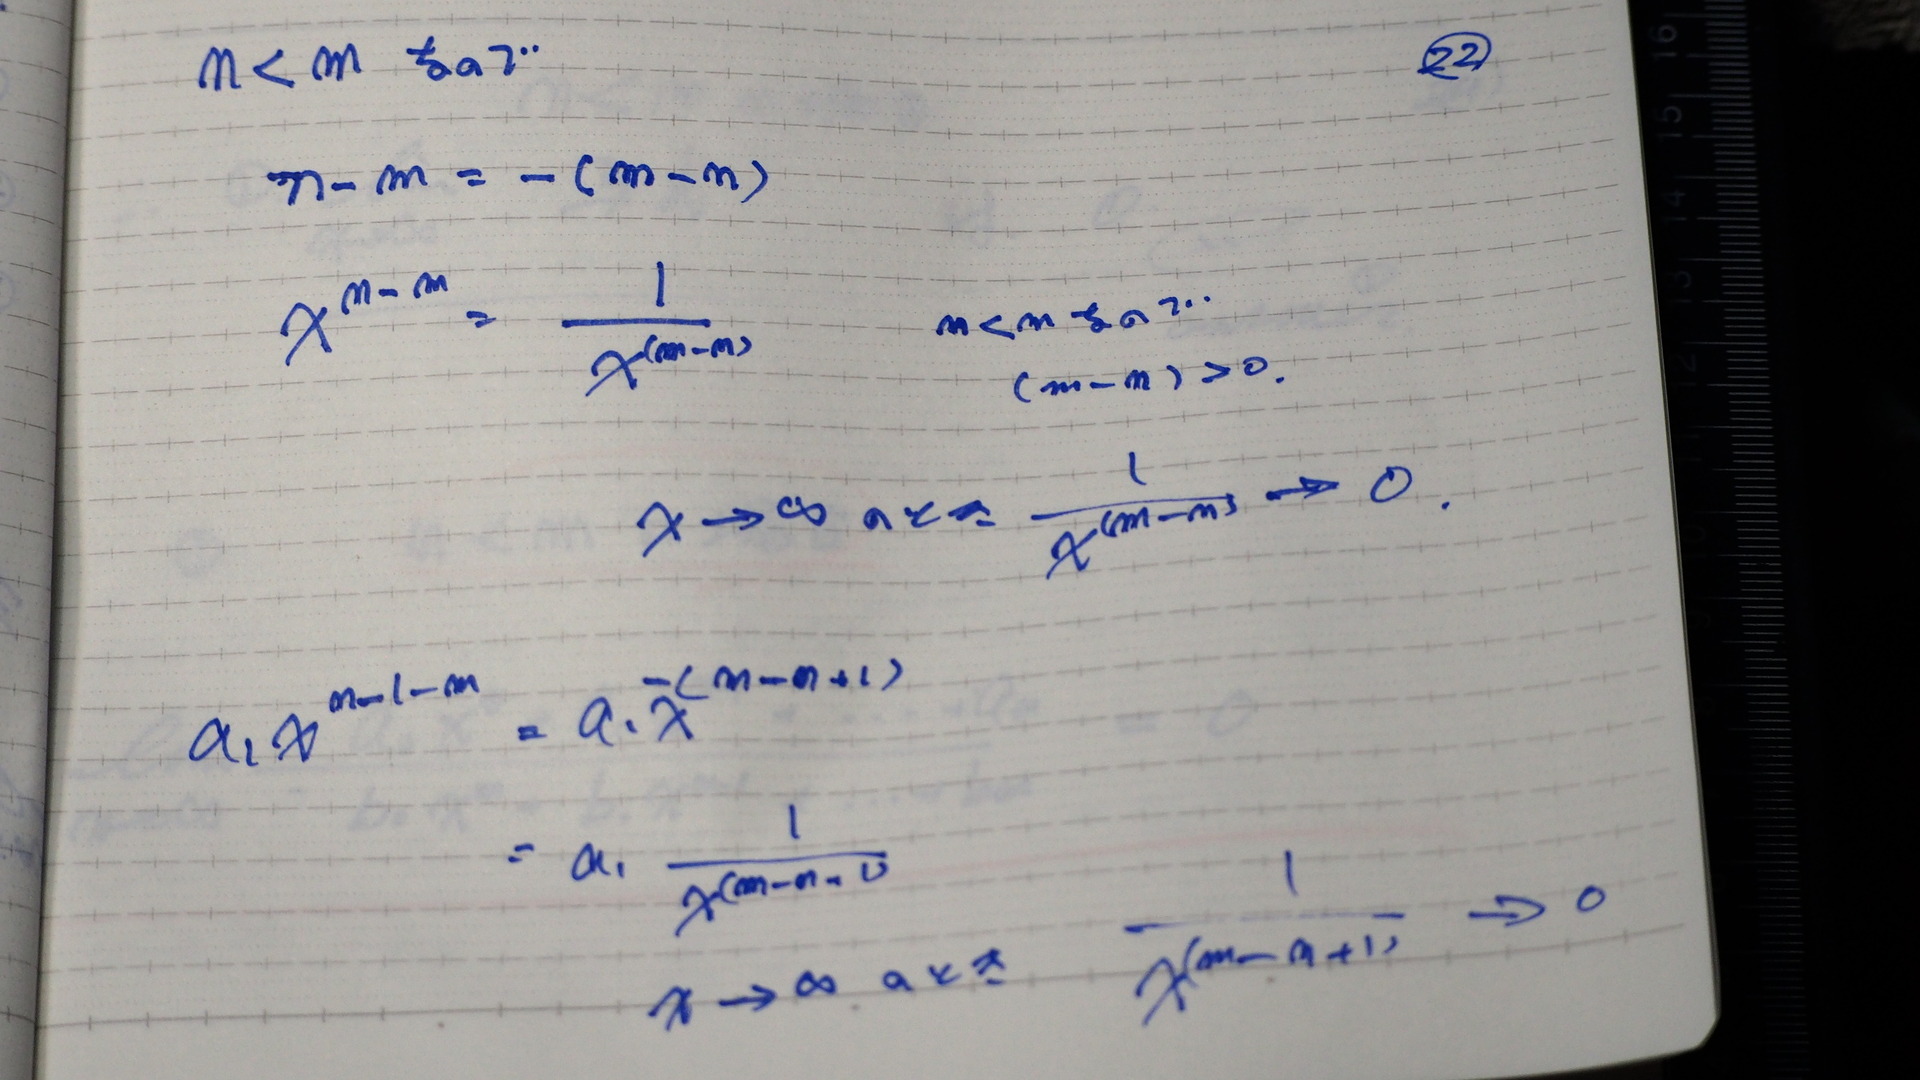 n < m なので
22
n - m = -(m - n)
x^{n-m} = \frac{1}{x^{(m-n)}}
n < m なので
(m - n) > 0.
x → ∞ のとき \frac{1}{x^{(m-n)}} → 0.
a_1 x^{n-1-m} = a_1 x^{-(m-n+1)}
= a_1 \frac{1}{x^{(m-n+1)}}
x → ∞ のとき \frac{1}{x^{(m-n+1)}} → 0
16
15
14
13
12